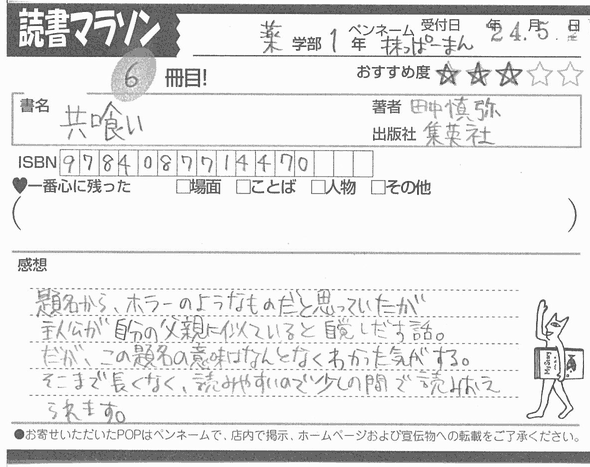 読書マラソン
薬 学部 1 年 ペンネーム 抹っぱーまん 受付日 年 月 日 24.5.
6 冊目! おすすめ度 ★★★☆☆
書名 共喰い 著者 田中慎弥
出版社 集英社
ISBN 9784087714470
♥一番心に残った □場面 □ことば □人物 □その他
( )
感想
題名から、ホラーのようなものだと思っていたが
主人公が自分の父親に似ていると自覚しだす話。
だが、この題名の意味はなんとなくわかった気がする。
そこまで長くなく、読みやすいので少しの間で読みおえ
られます。
●お寄せいただいたPOPはペンネームで、店内で掲示、ホームページおよび宣伝物への転載をご了承ください。